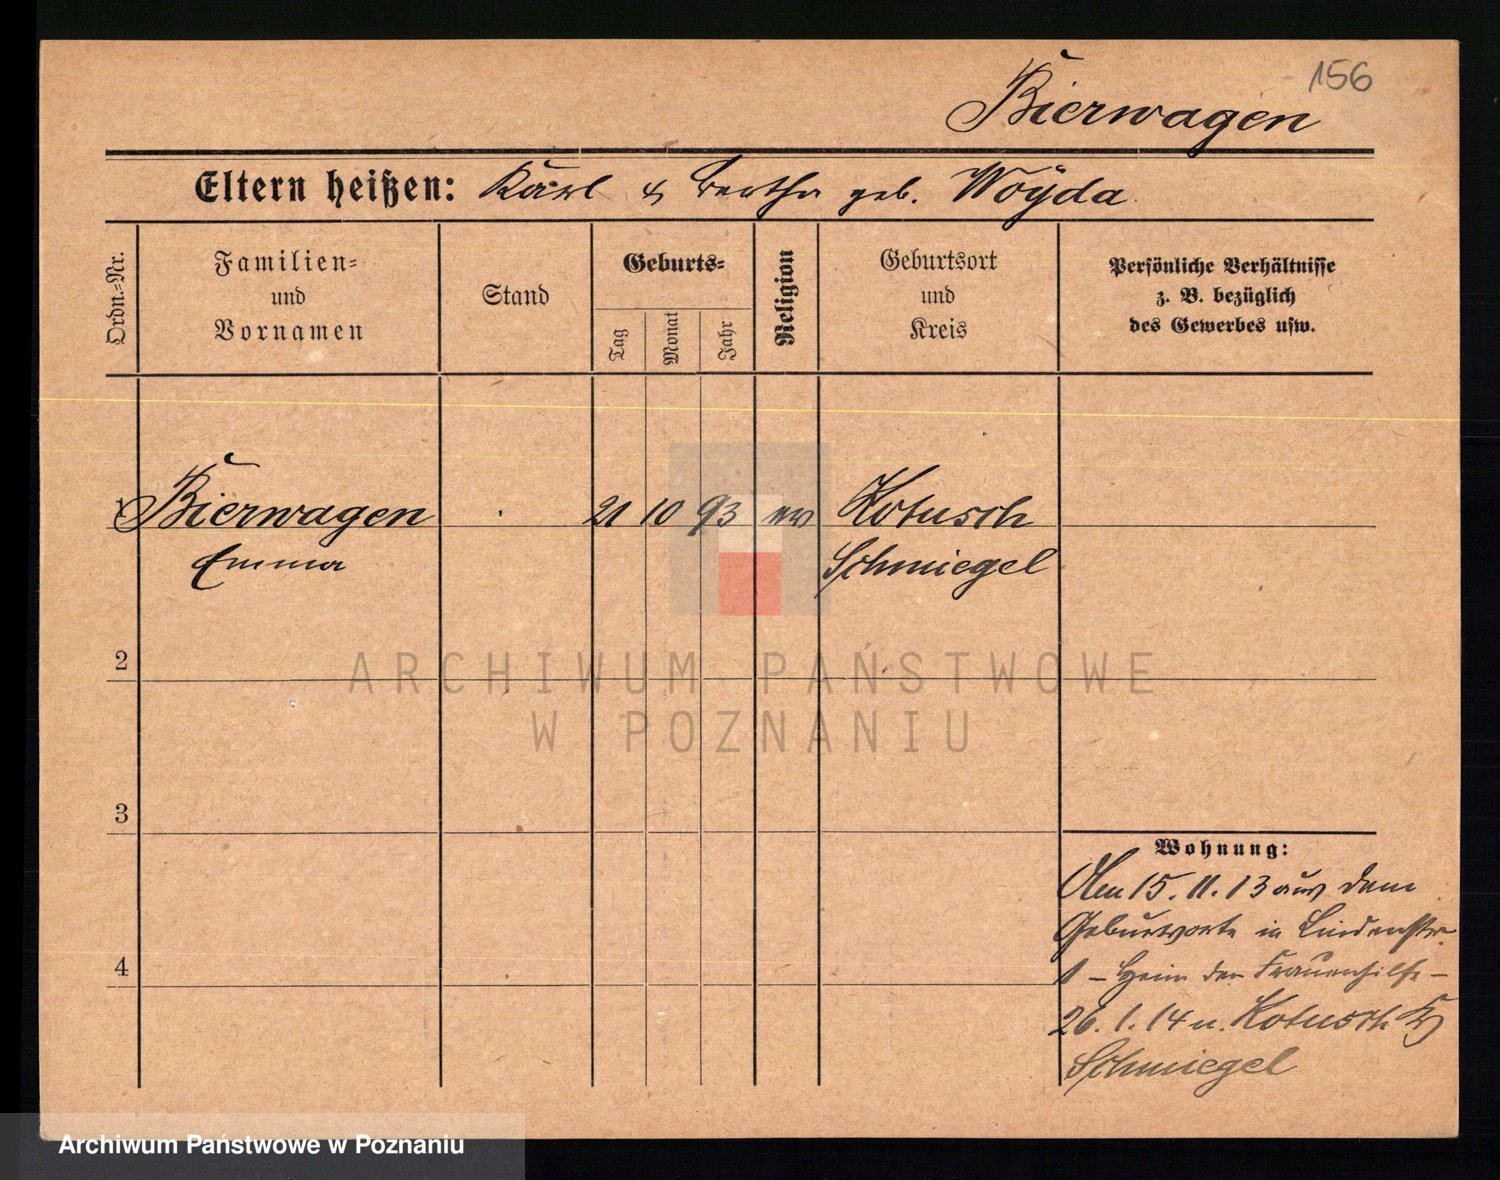 156
Bierwagen
Eltern heißen: Karl & Bertha geb. Woÿda
Ordn.-Nr.
Familien-
und
Vornamen
Stand
Geburts-
Tag
Monat
Jahr
Religion
Geburtsort
und
Kreis
Persönliche Verhältnisse
z. B. bezüglich
des Gewerbes usw.
1 Bierwagen 21 10 93 ev Kotusch
Emma Schmiegel
2
ARCHIWUM PAŃSTWOWE
W POZNANIU
3
Wohnung:
15. 11. 13 aus dem
Geburtsorte in Lindenstr.
1 – Heim der Frauenhilfe –
4
26. 1. 14 n. Kotusch Kr
Schmiegel
Archiwum Państwowe w Poznaniu